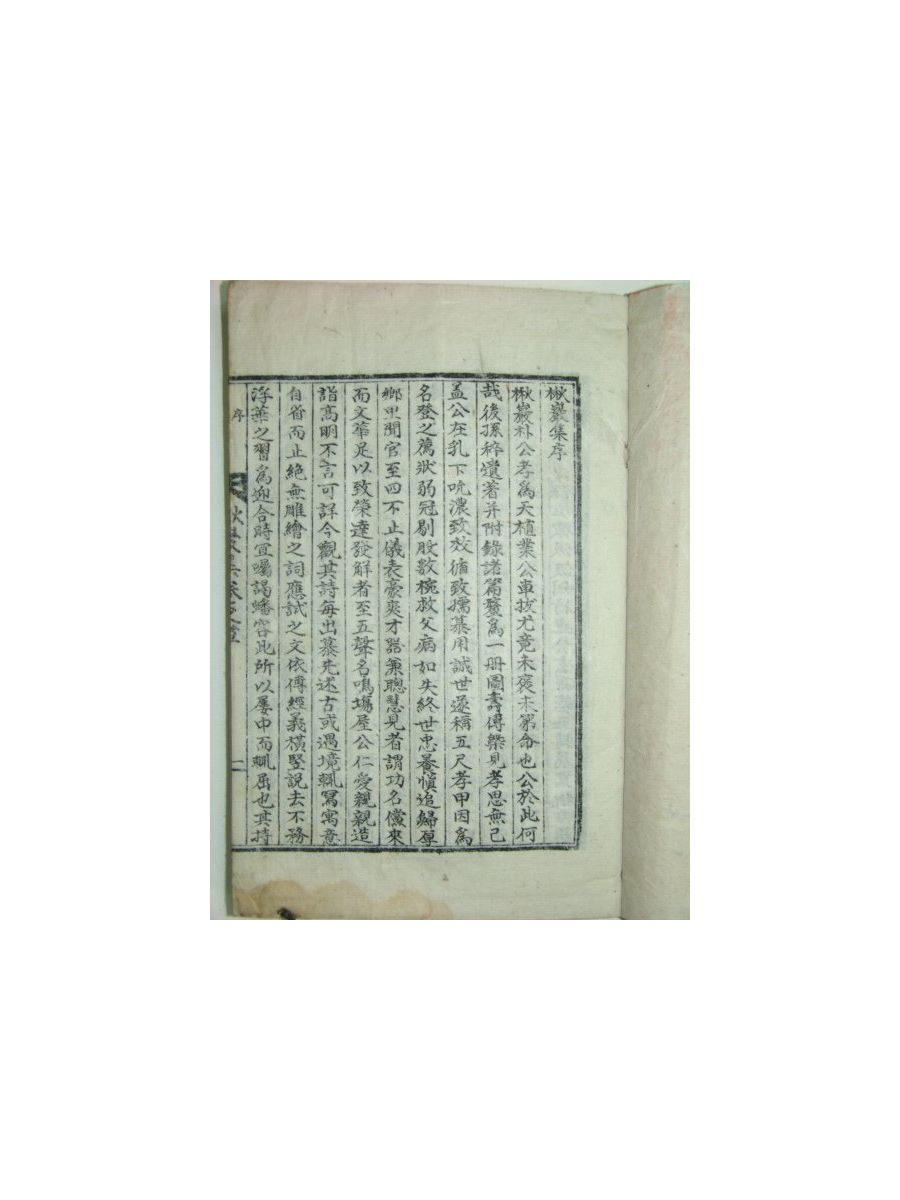 楸巖集序
楸巖朴公孝爲天植業公車拔尤竟未褎未第命也公於此何
哉後孫稡遺著并附錄諸篇釐爲一冊圖壽傳槩見孝思無已
盖公在乳下吮濃致效循致孺慕用誠世遂稱五尺孝甲因爲
名登之薦狀弱冠剔股數椀救父病如失終世忠養愼追歸厚
鄉里聞官至四不止儀表豪爽才器兼聰慧見者謂功名儻來
而文華是以致榮達發解者至五聲名鳴塲屋公仁愛親親造
詣高明不言可詳今觀其詩每出慕先述古或遇境輒寫寓意
自省而止絶無雕繪之詞應試之文依傳經義橫竪說去不務
浮華之習爲迎合時宜囑謁蟠容此所以屢中而輒屈也其持
序
一